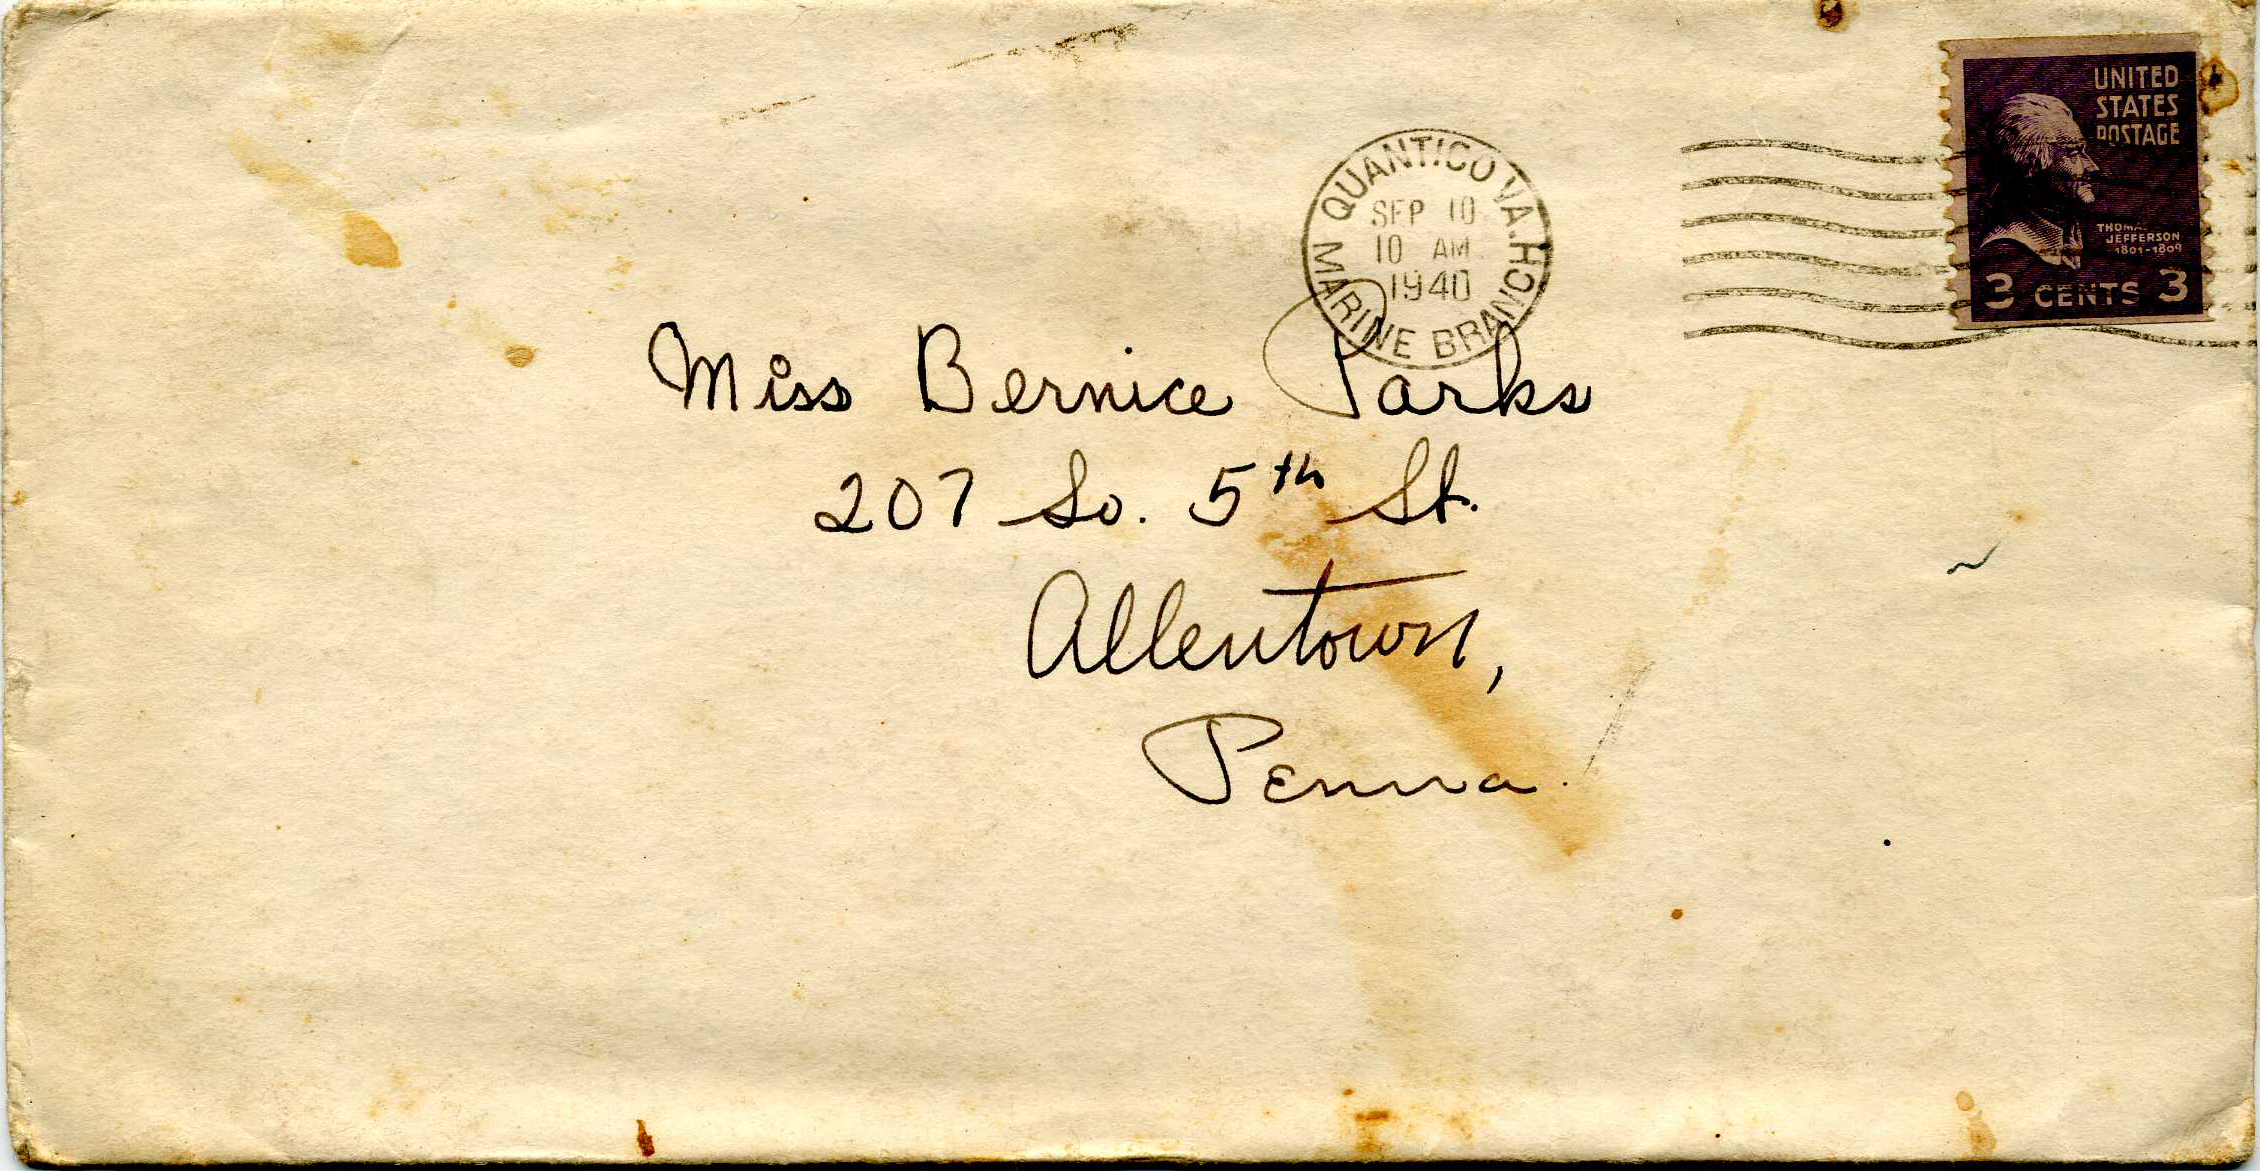 UNITED
STATES
POSTAGE
THOMAS
JEFFERSON
1801-1809
3 CENTS 3
QUANTICO VA.
SEP 10
10 AM
1940
MARINE BRANCH
Miss Bernice Parks
207 So. 5th St.
Allentown,
Penna.